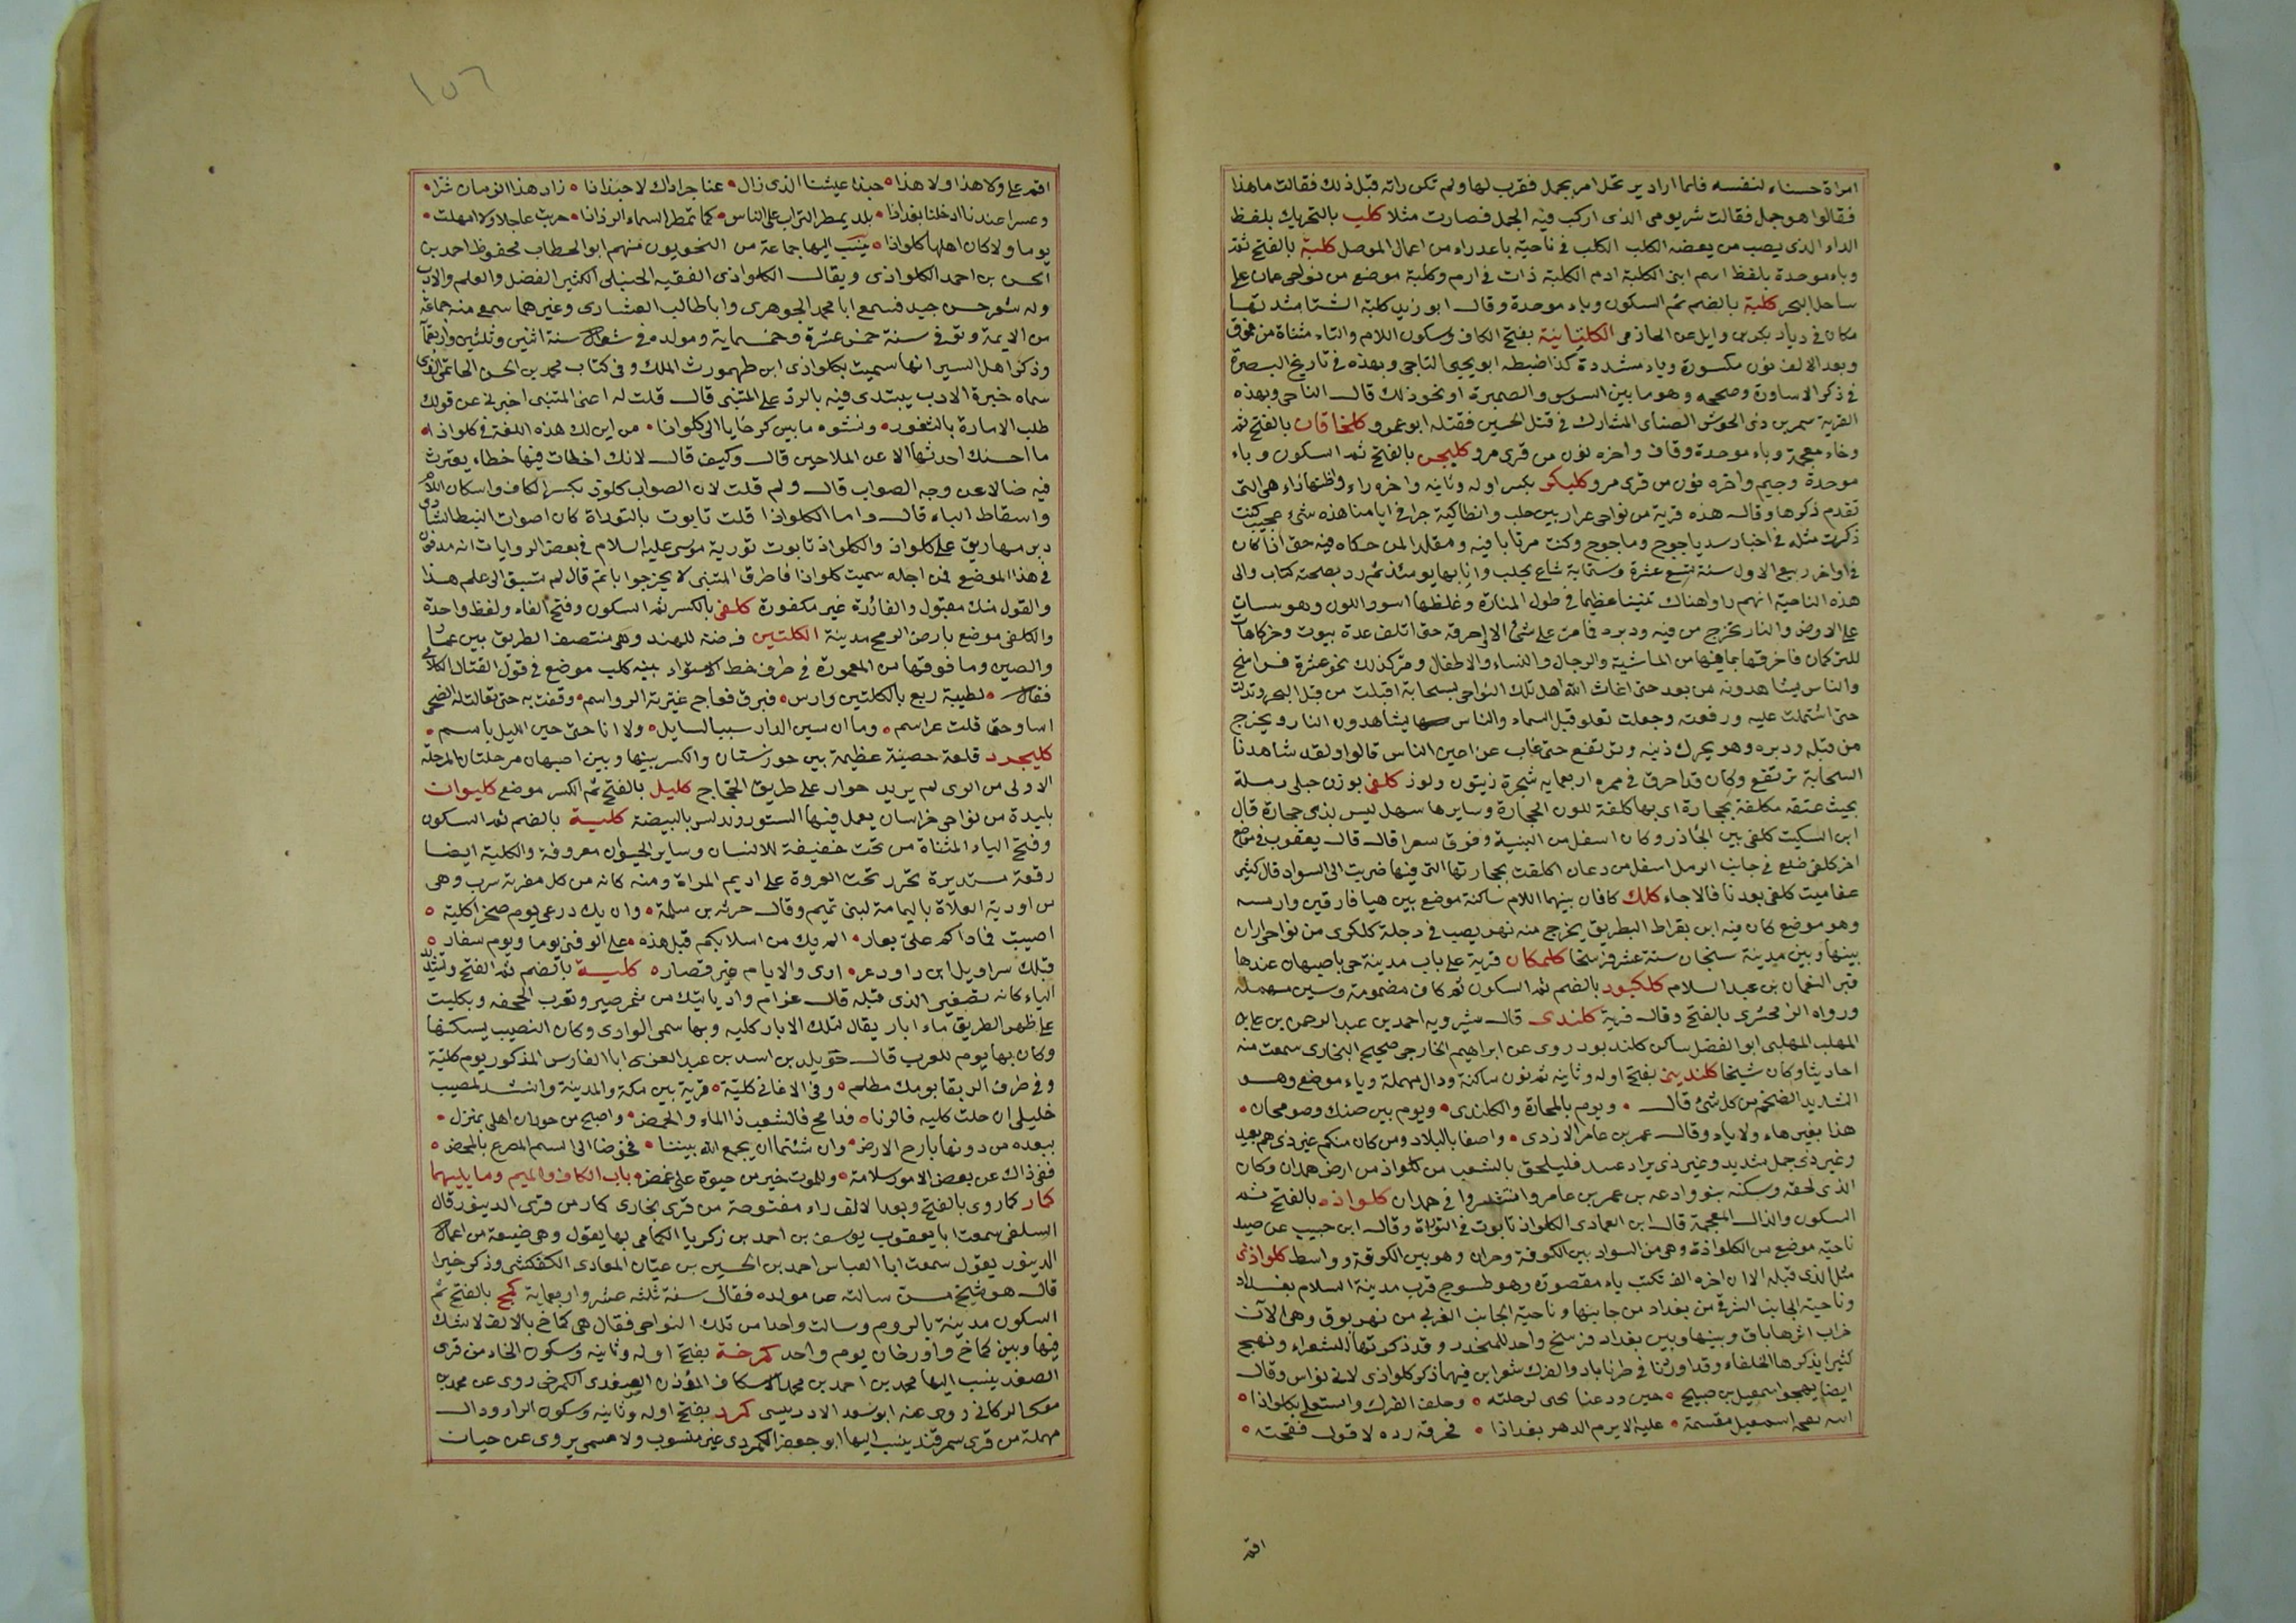 امراة حسناء لنفسه فلما اراد يرتحل امر بجمل فقرب لها ولم تكن راته قبل ذلك فقالت ما هذا
فقالوا هو جمل فقالت شر يومي الذي اركب فيه الجمل فصارت مثلا كلب بالتحريك بلفظ
الداء الذي يصيب من يعضه الكلب الكلب في ناحية باعدراء من اعمال الموصل كلبة بالفتح ثم
وباء موحدة بلفظ اسم انثى الكلبة ادم الكلبة ذات في ارم وكلبة موضع من نواحي عمان على
ساحل البحر كلبة بالضم ثم السكون وباء موحدة وقال ابو زيد كلبة الشتا شدتها
مكان في ديار بكر بن وايل عن الحازمي الكلتبانية بفتح الكاف وسكون اللام والتاء مثناة من فوق
وبعد الالف نون مكسورة وياء مشددة كذا ضبطه ابو يحيى الناجي وبهذه في تاريخ البصرة
في ذكر الاساورة وصححه وهو ما بين السوس والصميرة او نحو ذلك قال الناجي وبهذه
القرية سمر بن ذي الجوشن الضبابي المشارك في قتل الحسين فقتله ابو عمرو كلخاقان بالفتح ثم
وخاء معجمة وباء موحدة وقاف واخره نون من قرى مرو كليجن بالفتح ثم السكون وباء
موحدة وجيم واخره نون من قرى مرو كليكر بكسر اوله وثانيه واخره راء واظنها زاء هي التي
تقدم ذكرها وقال هذه قرية من نواحي عزاز بين حلب وانطاكية جرا في ايامنا هذه شئ عجيب كنت
ذكرت مثله في اخبار سد ياجوج وماجوج وكنت مرتابا فيه ومقلدا لمن حكاه فيه حتى اذا كان
في اواخر ربيع الاول سنة تسع عشرة وستماية شاع بحلب وانا بها يومئذ ثم رد بصحته كتاب والى
هذه الناحية انهم راوا هناك تنينا عظيما في طول المنارة وغلظها اسود اللون وهو ينساب
على الارض والنار تخرج من فيه ودبره فما مر على شئ الا احرقه حتى اتلف عدة بيوت وخركاهات
للتركمان فاحرقها بما فيها من الماشية والرجال والنساء والاطفال ومر كذلك نحو عشرة فراسخ
والناس يشاهدونه من بعد حتى اغاث الله اهل تلك النواحي بسحابة اقبلت من قبل البحر وتدلت
حتى اشتملت عليه ورفعته وجعلت تعلو قبل السماء والناس يشاهدون النار ويخرج
من قبله ودبره وهو يحرك ذنبه ويرتفع حتى غاب عن اعين الناس قالوا ولقد شاهدنا
السحابة ترتفع وكان قد احرق في ممره اربعماية شجرة زيتون ولوز كلفى بوزن حبلى رملة
بجيث عتقه مكلفة بحجارة اي بها كلفة للون الحجارة وسايرها سهل ليس بذي حجارة قال
ابن السكيت كلفى بين الجاذر وكان اسفل من البنية وفوق سعرا قال قال يعقوب في موضع
اخر كلفى ضلع في جانب الرمل اسفل من دعان اكلفت بحجارتها التي فيها ضربت الى السواد قال كثير
عفا ميت كلفى بعدنا فالاجاء كلك كافان بينهما اللام ساكنة موضع بين ميا فارقين وارمينية
وهو موضع كان فيه ابن بقراط البطريق يخرج منه نهر يصب في دجلة كلكوى من نواحي اران
بينها وبين مدينة سنجان ستة عشر فرسخا كلمكان قرية على باب مدينة جي باصبهان عندها
قبر النعمان بن عبد السلام كلكبود بالضم ثم السكون ثم كاف مضمومة وسين مهملة
ورواه الزمخشري بالفتح وقال قرية كلندى قال شيرويه احمد بن عبد الرحمن بن علي بن
المهلب المهلبي ابو الفضل ساكن كلندبود روى عن ابراهيم الخارجي صحيح البخاري سمعت منه
احاديثا وكان شيخا كلندين بفتح اوله وثانيه ثم نون ساكنة ودال مهملة وياء موضع وهو
الشديد الضخم من كل شئ قال ويوم بالمحازة والكلندى ويوم بين ضنك وصومحان
هذا بغير هاء ولا ياء وقال عمر بن عامر الازدي واصفا بالبلاد ومن كان منكم غير ذي هم بعيد
وغير ذي جمل شديد وغير ذي يراد عسد فليلحق بالشعب من كلواذ من ارض همدان وكان
الذي لحقه وسكنه بنو وادعة بن عمر بن عامر وانتشروا في همدان كلواذه بالفتح ثم
السكون والذال المعجمة قال ابن العمادي الكلواذ تابوت في التوراة وقال ابن حبيب عن صيد
ناحية موضع من الكلواذة وهي من السواد بين الكوفة وحران وهو بين الكوفة وواسط كلواذى
مثل الذي قبله الا ان اخره الف تكتب ياء مقصورة وهو طسوج قرب مدينة السلام بغداد
وناحية الجانب الشرقي من بغداد من جانبها وناحية الجانب الغربي من نهر بوق وهي الآن
خراب اثرها باق وبينها وبين بغداد فرسخ واحد للمنحدر وقد ذكرتها الشعراء ونهج
كثيرا يذكرها الخلفاء وقد اوردنا في طرناباد والفرك شعرا بن فيهما ذكر كلواذى لابي نواس وقال
ايضا يهجوا اسمعيل بن صبيح حين ودعنا يحيى لرحلته وخلف الفرك واستعلى بكلواذا
اسمعيل مقسمة عليه الا يرم الدهر بغداذا فخرقه رده لا قول فقحته
اقم
١٥٦
اقم على ولا هذا ولا هذا حبذا عيشنا الذي زال عنا جراداك لا حبذا نا زاد هذا الزمان شرا
وعسرا عندنا اذ خلنا بغداذا بلد يمطر التراب على الناس كما تمطر السماء الرذاذا خربت عاجلا ولا امهلت
يوما ولا كان اهلها كلواذا ينسب اليها جماعة من النحويين منهم ابو الخطاب محفوظ احمد بن
الحسن بن احمد الكلواذى ويقال الكلواذى الفقيه الحنبلى الكثير الفضل والعلم والادب
وله شعر حسن جيد فسمع ابا محمد الجوهرى وابا طالب العشارى وغيرهما سمع منه جماعة
من الايمة وتوفى سنة خمس عشرة وخمسماية ومولده في شوال سنة اثنين وثلثين واربعماية
وذكر اهل السير انها سميت بكلواذى ابن طهمورث الملك وفي كتاب محمد بن الحسن الحاتمي الذى
سماه خبرة الادب يبتدى فيه بالرد على المتنبى قال قلت له اعنى المتنبى اخبرني عن قولك
طلب الامارة بالثغور ونشوه ما بين كرخايا الى كلواذا من اين لك هذه اللغة في كلواذا
ما احسبك احدثها الا عن الملاحين قال وكيف قال لانك اخطات فيها خطاء يعثرت
فيه ضالا عن وجه الصواب قال ولم قلت لان الصواب كلوذ بكسر الكاف واسكان اللام
واسقاط الباء قال وما الكلواذا قلت تابوت بالتوراة كان اصوات النبط الشادى
دبر مهاريق على كلواذ والكلواذ تابوت تورية موسى عليه السلام في بعض الروايات انه مدفون
في هذا الموضع فمن اجله سميت كلواذا فاطرق المتنبى لا يخرج جوابا ثم قال لم تسبق الى علم هذا
والقول منك مقبول والفائدة غير مكفورة كلفى بالكسر ثم السكون وفتح الفاء ولفظ واحدة
والكلفى موضع بارض الروم مدينة الكلتين فرضة للهند وهي منتصف الطريق بين عمان
والصين وما فوقها من المعمورة في طرف خط الاستواء بينه كلب موضع في قول القتال الكلابى
فقال لطيبة ربع بالكلتين وارس فبرق فعاج غيرته الرواسم وقفت به حتى تعالت له الضحى
اسا وحتى قلت عراسم وما ان سين الدار سببا لسايل ولا انا حتى حين الليل باسم
كليجرد قلعة حصينة عظيمة بين خوزستان والكسر بينها وبين اصبهان مرحلتان المرحلة
الاولى من الرى لم يريد خوار على طريق الحجاج كليل بالفتح ثم الكسر موضع كليوان
بليدة من نواحى خراسان يعمل فيها الستور وتدلس بالبيضة كلية بالضم ثم السكون
وفتح الياء المثناة من تحت خفيفة للانسان وساير الحيوان معروفة والكلية ايضا
رقعة مستديرة تحرر تحت العروة على اديم المزاة ومنه كانه من كل مفرية سرب وهى
من اودية العلاة باليمامة لبنى تميم وقال حريه بن سلمة وان يك درعى يوم صحرا كلية
اصيبت فماذاكم على بعار الم يك من اسلابكم قبل هذه على الوفى يوما ويوم سفار
فتلك سراويل ابن داود عر ارى والايام غير قصاره كلية بالضم ثم الفتح وتشديد
الياء كانه تصغير الذى قبله قال عزام واد ياتيك من شمرصير وتقرب الجحفه وبكليت
على ظهر الطريق ماء ابار يقال لتلك الابار كليه وبها سمى الوادى وكان النصيب يسكنها
وكان بها يوم للعرب قال خويلد بن اسد بن عبد العزى ابا الفارس المذكور يوم كلية
وفي طرف الريقا يومك مظلم وفى الاغانى كلية قرية بين مكة والمدينة وانشد لنصيب
خليلى ان حلت كليه فالربا فدامج فالشعب ذا الماء والحمض واصبح من حوران اهلى بمنزل
ببعده من دونها بارح الارض وان شئتما ان يجمع الله بيننا فخوضا الى السم المصرع بالمحض
ففى ذاك عن بعض الامور سلامة وللموت خير من حيوة على غمض باب الكاف والميم وما يليهما
كمار كما روى بالفتح وبعد الالف راء مفتوحة من قرى بخارى كمار من قرى الدينور قال
السلفى سمعت ابا يعقوب يوسف بن احمد بن زكريا الكمامى بها يقول وهى ضيعة من اعمال
الدينور يقول سمعت ابا العباس احمد بن الحسين بن عيان المعادى الكنكشى وذكر خيرا
قال هو شيخ مسن سالته عن مولده فقال سنة ثلثه عشر واربعماية كمخ بالفتح ثم
السكون مدينة بالروم وسالت واحدا من تلك النواحى فقال هى كماخ بالالف لاشك
فيها وبين كماخ وارزنجان يوم واحد كمرخة بفتح اوله وثانيه وسكون الخاء من قرى
الصغد ينسب اليها محمد بن احمد بن محمد الاسكاف المؤذن الصغدى الكمرخى روى عن محمد بن
الركانى روى عنه ابو سعد الادريسى كمرد بفتح اوله وثانيه وسكون الراء ودال
مهملة من قرى سمرقند ينسب اليها ابو جعفر الكمردى غير منسوب ولا مسمى يروى عن حيات